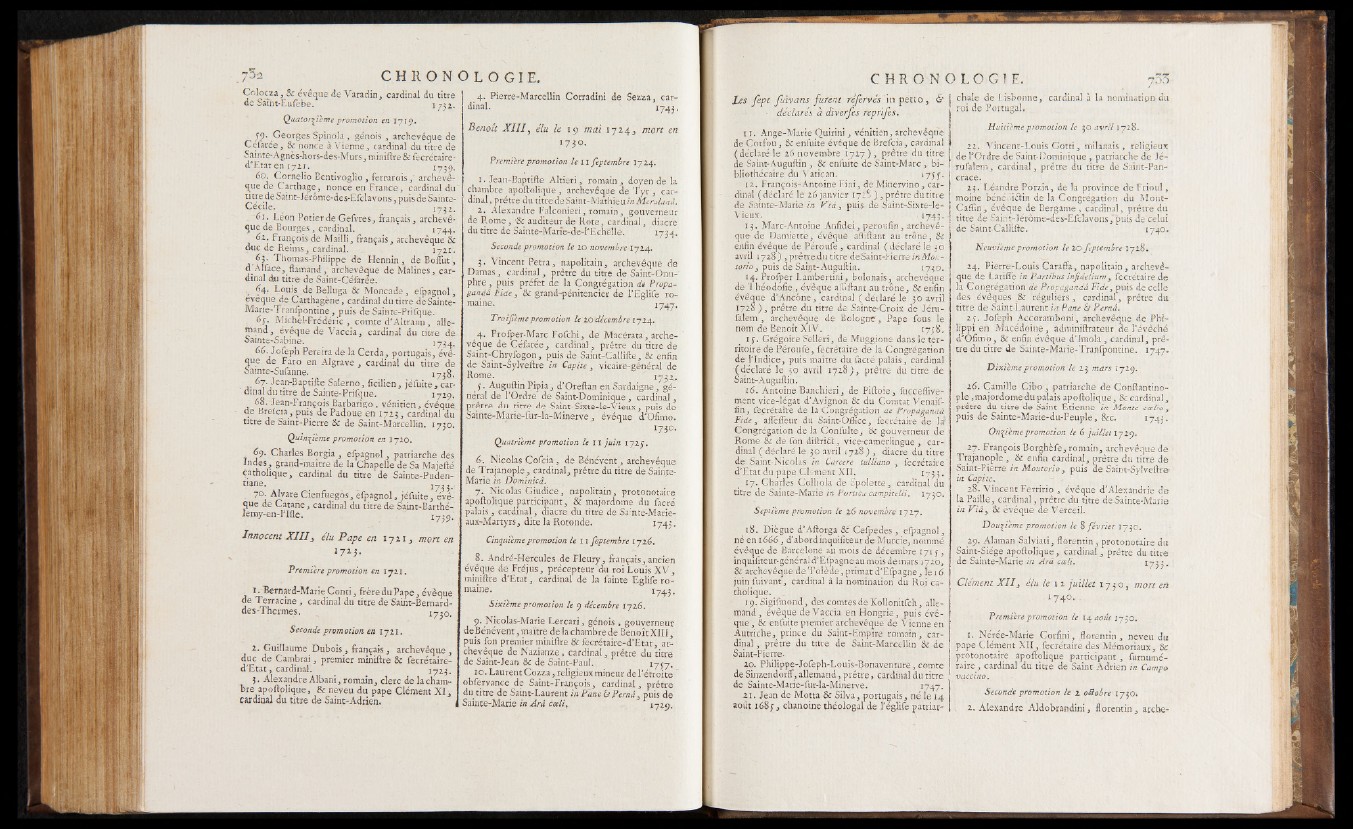 732 CHRONOLOGIE.
Colocza, & évêque de Varadin, cardinal du titre
de Saint-Eufebe. 1732.
Quatorzième promotion en 1719.
59. Georges Spinola, génois, archevêque de
Céfarée, & nonce à Vienne, cardinal du titre de
Sainte-Agnes-hors-des-Murs, miniftre & fecrétaire-
d'Etat en 1721. 1739.
60. Cornelio Bentivoglio, ferrarois, archevê-
que de Carthage, nonce en France, cardinal du
titre de Saint-Jérôme-des-Efclavons, puis de Sainte-
Cécile. 1732.
61. Léon Potier de Gefvres, français, archevê-
que de Bourges, cardinal. 1744.
62. François de Mailli, français, archevêque &
duc de Reims, cardinal. 1721.
63. Thomas-Philippe de Hennin, de Boffut,
d'Alface, flamand, archevêque de Malines, car-
dinal du titre de Saint-Céfarée.
64. Louis de Belluga & Moncade, efpagnol,
évêque de Carthagène, cardinal du titre de Sainte-
Marie-Tranfpontine, puis de Sainte-Prifque.
65. Michel-Fréderic, comte d'Altrann, alle-
mand, évêque de Vaccia, cardinal du titre de
Sainte-Sabine. 1734.
66. Jofeph Pereira de la Cerda, portugais, évê-
que de Faro en Algrave, cardinal du titre de
Sainte-Sufanne. 1738.
67. Jean-Baptifte Salerno, ficilien, jéfuite, car-
dinal du titre de Sainte-Prifque. 1729.
68. Jean-François Barbarigo, vénitien, évêque
de Brefcia, puis de Padoue en 1723, cardinal du
titre de Saint-Pierre & de Saint-Marcellin. 1730.
Quinzième promotion en 1720.
69. Charles Borgia, efpagnol, patriarche des
Indes, grand-maître de la Chapelle de Sa Majefté
catholique, cardinal du titre de Sainte-Puden-
tiane. 1733.
70. Alvare Cienfuegos, efpagnol, jéfuite, évê-
que de Catane, cardinal du titre de Saint-Barthé-
lemy-en-l'Ifle. 1739.
Innocent XIII, élu Pape en 1721, mort en
1723.
Première promotion en 1721.
1. Bernard-Marie Conti, frère du Pape, évêque
de Terracine, cardinal du titre de Saint-Bernard-
des-Thermes. 1730.
Seconde promotion en 1721.
2. Guillaume Dubois, français, archevêque,
duc de Cambrai, premier miniftre & fecrétaire-
d'Etat, cardinal. 1723.
3. Alexandre Albani, romain, clerc de la cham-
bre apoftolique, & neveu du pape Clément XI,
cardinal du titre de Saint-Adrien.
4. Pierre-Marcellin Corradini de Sezza, car-
dinal. 1743.
Benoît XIII, élu le 29 mai 1724, mort en
1730.
Première promotion le 11 feptembre 1724.
1. Jean-Baptifte Altieri, romain, doyen de la
chambre apoftolique, archevêque de Tyr, car-
dinal, prêtre du titre de Saint-Mathieu in Merulanâ.
2. Alexandre Falconieri, romain, gouverneur
de Rome, & auditeur de Rote, cardinal, diacre
du titre de Sainte-Marie-de-l'Echelle. 1734.
Seconde promotion le 20 novembre 1724.
3. Vincent Petra, napolitain, archevêque de
Damas, cardinal, prêtre du titre de Saint-Onu-
phre, puis préfet de la Congrégation de Propa-
gandâ Fide, & grand-pénitencier de l'Eglife ro-
maine. 1747.
Troifième promotion le 20 décembre 1724.
4. Profper-Marc Fofchi, de Macérata, arche-
vêque de Céfarée, cardinal, prêtre du titre de
Saint-Chryfogon, puis de Saint-Callifte, & enfin
de Saint-Sylveftre in Capite, vicaire-général de
Rome. 1732.
5. Auguftin Pipia, d'Oreftan en Sardaigne, gé-
néral de l'Ordre de Saint-Dominique, cardinal,
prêtre du titre de Saint-Sixte-le-Vieux, puis de
Sainte-Marie-fur-la-Minerve, évêque d'Ofimo.
1730.
Quatrième promotion le 11 juin 1725.
6. Nicolas Cofcia, de Bénévent, archevêque
de Trajanople, cardinal, prêtre du titre de Sainte-
Marie in Dominicâ.
7. Nicolas Giudice, napolitain, protonotaire
apoftolique participant, & majordome du facré
palais, cardinal, diacre du titre de Sainte-Marie-
aux-Martyrs, dite la Rotonde. 1743.
Cinquième promotion le 11 feptembre 1726.
8. André-Hercules de Fleury, français, ancien
évêque de Fréjus, précepteur du roi Louis XV,
miniftre d'Etat, cardinal de la fainte Eglife ro-
maine. 1743.
Sixième promotion le 9 décembre 1726.
9. Nicolas-Marie Lercari, génois, gouverneur
de Bénévent, maître de la chambre de Benoît XIII,
puis fon premier miniftre & fecrétaire-d'Etat, ar-
chevêque de Nazianze, cardinal, prêtre du titre
de Saint-Jean & de Saint-Paul. 1757.
10. Laurent Cozza, religieux mineur de l'étroite
obfervance de Saint-François, cardinal, prêtre
du titre de Saint-Laurent in Pane & Pernâ, puis de
Sainte-Marie in Arâ cœli. 1729.
CHRONOLOGIE. 733
Les fept fuivans furent réfervés in petto, &
déclarés à diverfes reprifes.
11. Ange-Marie Quirini, vénitien, archevêque
de Corfou, & enfuite évêque de Brefcia, cardinal
(déclaré le 26 novembre 1727), prêtre du titre
de Saint-Auguftin, & enfuite de Saint-Marc, bi-
bliothécaire du Vatican. 1755.
12. François-Antoine Fini, de Minervino, car-
dinal (déclaré le 26 janvier 1728), prêtre du titre
de Sainte-Marie in Viâ, puis de Saint-Sixte-le-
Vieux. 1743.
13. Marc-Antoine Anfidei, peroufin, archevê-
que de Damiette, évêque affiftant au trône, &
enfin évêque de Péroufe, cardinal (déclaré le 30
avril 1728), prêtre du titre de Saint-Pierre in Mon-
torio, puis de Saint-Auguftin. 1730.
14. Profper Lambertini, bolonais, archevêque
de Théodofie, évêque affiftant au trône, & enfin
évêque d'Ancône, cardinal (déclaré le 30 avril
1728), prêtre du titre de Sainte-Croix de Jéru-
falem, archevêque de Bologne, Pape fous le
nom de Benoît XIV. 1758.
15. Grégoire Selleri, de Muggione dans le ter-
ritoire de Péroufe, fecrétaire de la Congrégation
de l'Indice, puis maître du facré palais, cardinal
(déclaré le 30 avril 1728), prêtre du titre de
Saint-Auguftin.
16. Antoine Banchieri, de Piftoie, fucceffive-
ment vice-légat d'Avignon & du Comtat Venaif-
fin, fecrétaire de la Congrégation de Propagandâ
Fide, affeffeur du Saint-Office, fecrétaire de la
Congrégation de la Confulte, & gouverneur de
Rome & de fon diftrict, vice-camerlingue, car-
dinal (déclaré le 30 avril 1728), diacre du titre
de Saint-Nicolas in Carcere tulliano, fecrétaire
d'Etat du pape Clément XII. 1733.
17. Charles Collicola de Spolette, cardinal du
titre de Sainte-Marie in Porticu campitelli. 1730.
Septième promotion le 26 novembre 1727.
18. Diègue d'Aftorga & Cefpedes, efpagnol,
né en 1666, d'abord inquifiteur de Murcie, nommé
évêque de Barcelone au mois de décembre 1715,
inquifiteur-général d'Efpagne au mois de mars 1720,
& archevêque de Tolède, primat d'Efpagne, le 16
juin fuivant, cardinal à la nomination du Roi ca-
tholique.
19. Sigifmond, des comtes de Kollonitfch, alle-
mand, évêque de Vaccia en Hongrie, puis évê-
que, & enfuite premier archevêque de Vienne en
Autriche, prince du Saint-Empire romain, car-
dinal, prêtre du titre de Saint-Marcellin & de
Saint-Pierre.
20. Philippe-Jofeph-Louis-Bonaventure, comte
de Sinzendorff, allemand, prêtre, cardinal du titre
de Sainte-Marie-fur-la-Minerve. 1747.
21. Jean de Motta & Silva, portugais, né le 14
août 1685, chanoine théologal de l'églife patriar-
chale de Lisbonne, cardinal à la nomination du
roi de Portugal.
Huitième promotion le 30 avril 1728.
22. Vincent-Louis Gotti, milanais, religieux
de l'Ordre de Saint-Dominique, patriarche de Jé-
rufalem, cardinal, prêtre du titre de Saint-Pan-
crace.
23. Léandre Porzia, de la province de Frioul,
moine bénédictin de la Congrégation du Mont-
Caffin, évêque de Bergame, cardinal, prêtre du
titre de Saint-Jérôme-des-Efclavons, puis de celui
de Saint Callifte. 1740.
Neuvième promotion le 20 feptembre 1728.
24. Pierre-Louis Caraffa, napolitain, archevê-
que de Lariffe in Partibus infidelium, fecrétaire de
la Congrégation de Propagandâ Fide, puis de celle
des évêques & réguliers, cardinal, prêtre du
titre de Saint-Laurent in Pane & Pernâ.
25. Jofeph Accoramboni, archevêque de Phi-
lippi en Macédoine, adminiftrateur de l'évêché
d'Ofimo, & enfin évêque d'Imola, cardinal, prê-
tre du titre de Sainte-Marie-Tranfpontine. 1747.
Dixième promotion le 23 mars 1729.
26. Camille Cibo, patriarche de Conftantino-
ple, majordome du palais apoftolique, & cardinal,
prêtre du titre de Saint Etienne in Monte cœlio,
puis de Sainte-Marie-du-Peuple, &c. 1743.
Onzième promotion le 6 juillet 1729.
27. François Borghèfe, romain, archevêque de
Trajanople, & enfin cardinal, prêtre du titre de
Saint-Pierre in Montorio, puis de Saint-Sylveftre
in Capite.
28. Vincent Ferririo, évêque d'Alexandrie de
la Paille, cardinal, prêtre du titre de Sainte-Marie
in Viâ, & évêque de Verceil.
Douzième promotion le 8 février 1730.
29. Alaman Salviati, florentin, protonotaire du
Saint-Siége apoftolique, cardinal, prêtre du titre
de Sainte-Marie in Arâ cœli. 1733.
Clément XII, élu le 12 juillet 1730, mort en
1740.
Première promotion le 14 août 1730.
1. Nérée-Marie Corfini, florentin, neveu du
pape Clément XII, fecrétaire des Mémoriaux, &
protonotaire apoftolique participant, furnumé-
raire, cardinal du titre de Saint Adrien in Campo
vaccino.
Seconde promotion le 2 octobre 1730.
2. Alexandre Aldobrandini, florentin, arche-